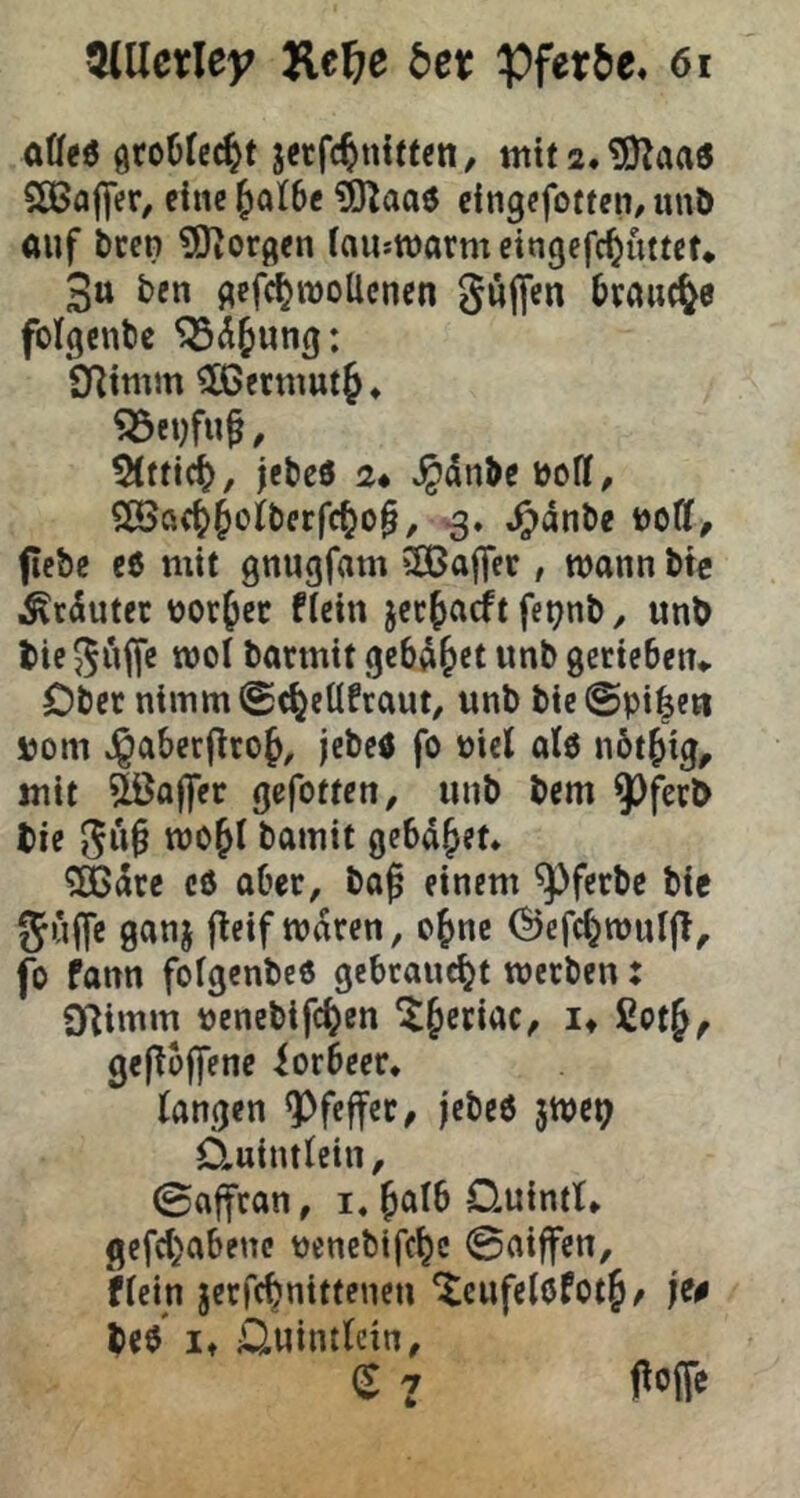 Allerley Rehe der Pferde. 61
alles groblecht zerschnitten, mit 2. Maas
Wasser, eine halbe Maas eingesotten, und
auf drey Morgen lau-warm eingeschüttet.
Zu den geschwollenen Füssen brauche
folgende Bähung:
Nimm Wermuth.
Beyfuß,
Attich, jedes 2. Händ voll,
Wachholderschoß, 3. Händ voll,
siede es mit gnugsam Wasser, wann die
Kräuter vorher klein zerhackt seynd, und
die Füsse wol darmit gebähet und gerieben.
Oder nimm Schellkraut, und die Spitzen
vom Haberstroh, jedes so viel als nöthig,
mit Wasser gesotten, und dem Pferd
die Füß wohl damit gebähet.
Wäre es aber, daß einem Pferde die
Füsse ganz steif wären, ohne Geschwulst,
so kann folgendes gebraucht werden:
Nimm venedischen Theriac, 1. Loth,
gestossene Lorbeer.
langen Pfeffer, jedes zwey
Quintlein,
Saffran, 1. halb Quintl.
geschabene venedische Saiffen,
klein zerschnittenen Teufelskoth, je-
des 1. Quintlein,
E 7 stosse